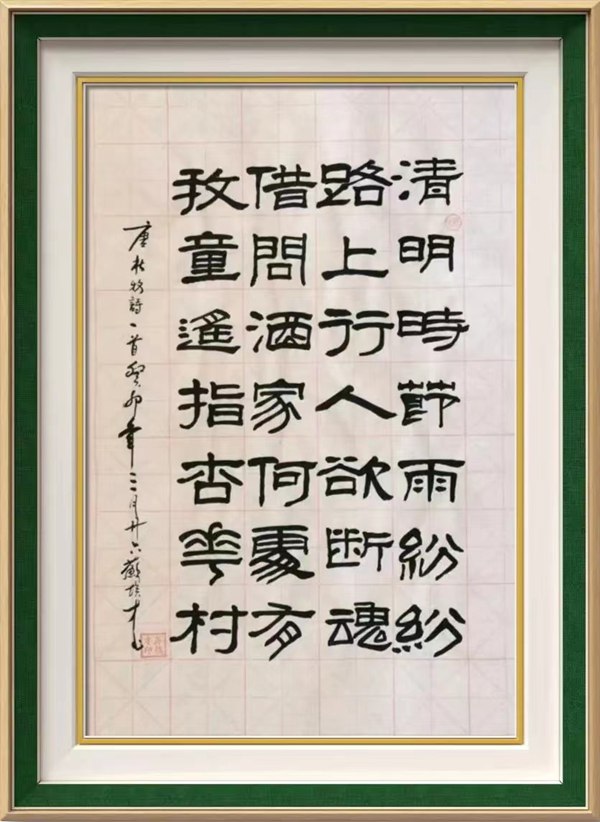 清明時節雨紛紛
路上行人欲断魂
借問酒家何處有
牧童遙指杏花村
唐杜牧詩一首癸卯年三月廿六蘇